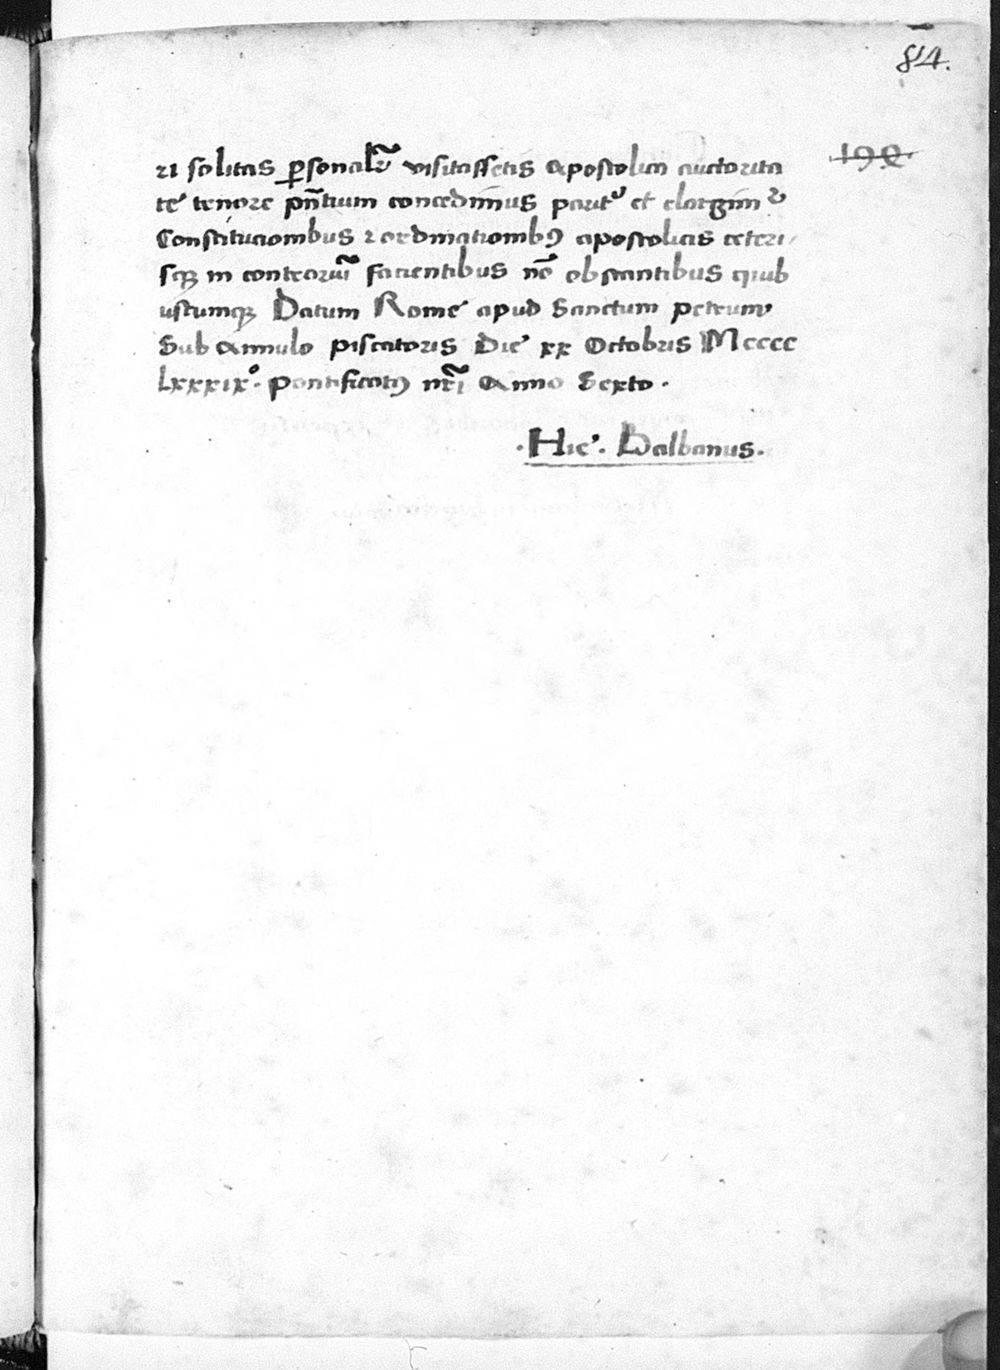 84.
190
ri solitas p̲sonalr̃ visitassetis Apostolica auctorita
te tenore pñtium concedimus parit᷑ et elargimr
Constitucionibus ⁊ ordinationibꝰ apostolicis ceteri/
sqꝫ in contrariũ facientibus nõ obstantibus quib
uscumqꝫ Datum Rome apud Sanctum petrum
Sub Annulo piscatoris Die xx Octobris Mcccc
lxxxix°. pontificatꝰ nr̃i Anno Sexto.
. Hie. Balbanus.